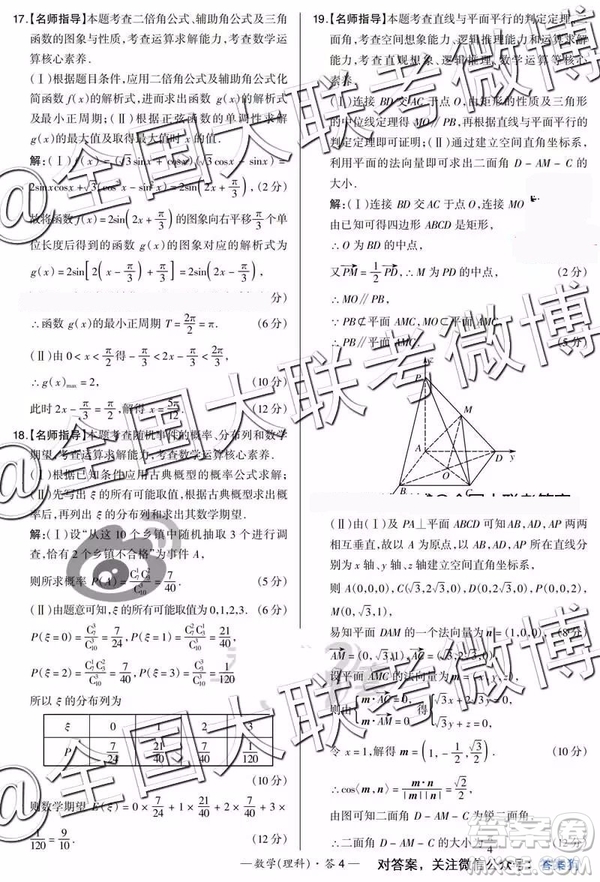 17.【名师指导】本题考查二倍角公式、辅助角公式及三角
函数的图象与性质,考查运算求解能力,考查数学运
算核心素养.
(Ⅰ)根据题目条件,应用二倍角公式及辅助角公式化
简函数 f(x)的解析式,进而求出函数 g(x)的解析式
及最小正周期;(Ⅱ)根据正弦函数的单调性求解
g(x)的最大值及取得最大值时 x 的值.
解:(Ⅰ)
2sinxcosx+√3(cos²x-sin²x)=2sin(2x+π/3),(2分)
故将函数 f(x)=2sin(2x+π/3)的图象向右平移π/3个单
位长度后得到的函数 g(x)的图象对应的解析式为
g(x)=2sin[2(x-π/3)+π/3]=2sin(2x-π/3).
分)
∴函数 g(x)的最小正周期 T=2π/2=π. (6分)
(Ⅱ)由 0<x<π/2得-π/3<2x-π/3<
∴g(x)max=2, (10分)
此时 2x-π/3=π/2,解得 x=5π/12. (12分)
18.【名师指导】本题考查随机事件的概率、分布列和数学
期望,考查运算求解能力,考查数学运算核心素养.
(Ⅰ)根据已知条件应用古典概型的概率公式求解;
(Ⅱ)先写出 ξ 的所有可能取值,根据古典概型求出概
率,再列出 ξ 的分布列和求出其数学期望.
解:(Ⅰ)设“从这 10 个乡镇中随机抽取 3 个进行调
查,恰有 2 个乡镇不合格”为事件 A,
则所求概率 P(A)=C¹₇C²₃/C³₁₀=7/40. (5分)
(Ⅱ)由题意可知,ξ 的所有可能取值为 0,1,2,3. (6分)
P(ξ=0)=C³₇/C³₁₀=7/24,P(ξ=1)=C²₇C¹₃/C³₁₀=21/40,
P(ξ=2)=C¹₇C²₃/C³₁₀=7/40,P(ξ=3)=C³₃/C³₁₀=1/120
所以 ξ 的分布列为
ξ 0 1 2 3
P 7/24 21/40 7/40 1/120
(10分)
则数学期望 E(ξ)=0×7/24+1×21/40+2×7/40+3×
1/120=9/10. (12分)
19.【名师指导】本题考查直线与平面平行的判定定理、
面角,考查空间想象能力、逻辑推理能力,考查
直观想象、逻辑推理、数学运算等核心素养.
(Ⅰ)连接 BD 交 AC 于点 O,由矩形的性质及三角形
的中位线定理得 MO∥PB,再根据直线与平面平行的
判定定理即可证明;(Ⅱ)通过建立空间直角坐标系,
利用平面的法向量即可求出二面角 D-AM-C 的
大小.
解:(Ⅰ)连接 BD 交 AC 于点 O,连接 MO
由已知可得四边形 ABCD 是矩形,
∴O 为 BD 的中点,
又PM=1/2PD,∴M 为 PD 的中点, (2分)
∴MO∥PB.
∵PB⊄平面 AMC,MO⊂平面 AMC,
∴PB∥平面 AMC. (5分)
P
M
A
D
O
B
C
(Ⅱ)由(Ⅰ)及 PA⊥平面 ABCD 可知 AB,AD,AP 两两
相互垂直,故以 A 为原点,以 AB,AD,AP 所在直线分
别为 x 轴、y 轴、z 轴建立空间直角坐标系,
则 A(0,0,0),C(√3,2√3,0),D(0,2√3,0),P(0,0,2),
M(0,√3,1),
易知平面 DAM 的一个法向量为 n=(1,0,0),(8分)
AM=(0,√3,1),AC=(√3,2√3,0),
设平面 AMC 的法向量为 m=(x,y,z),
则由{m·AC=0, m·AM=0,得{√3x+2√3y=0, √3y+z=0,
令 z=1,解得 m=(2√3/3,-√3/3,1), (10分)
∴cos⟨m,n⟩=m·n/|m||n|=√2/2,
由图可知二面角 D-AM-C 的大小为锐角,
∴二面角 D-AM-C 的大小为π/4. (12分)
—数学(理科)·答4—
对答案,关注微信公众号:
@全国大联考微博
@全国大联考微博
@全国大联考微博